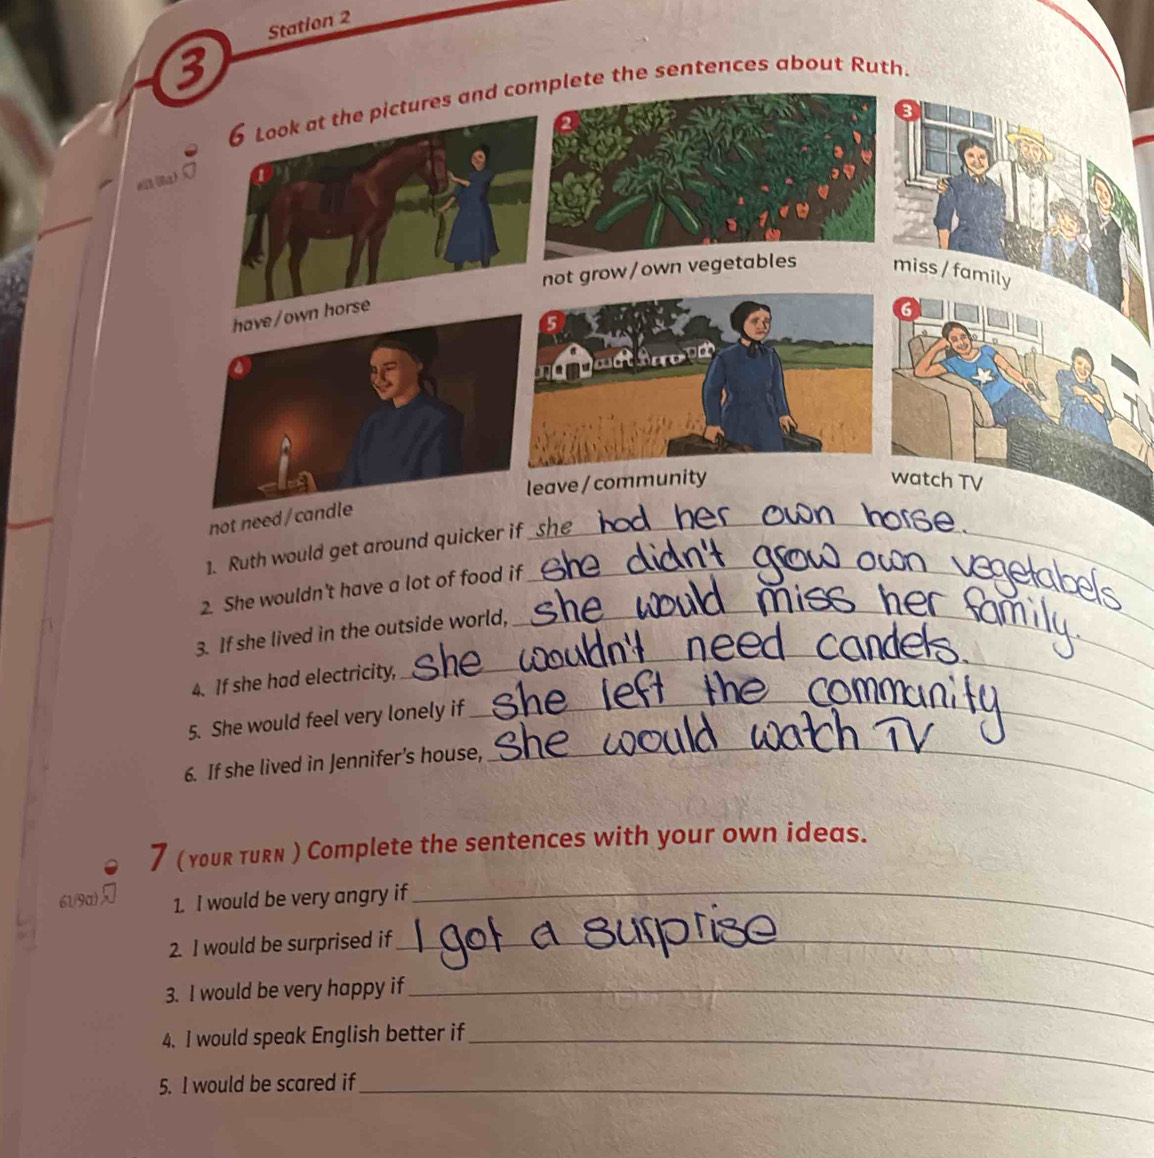 Station 2
3
6 Look at the pictures and complete the sentences about Ruth.
1
2
3
have / own horse
not grow / own vegetables
miss / family
4
5
6
not need / candle
leave / community
watch TV
1. Ruth would get around quicker if she had her own horse.
2. She wouldn't have a lot of food if she didn't grow own vegetabels
3. If she lived in the outside world, she would miss her family.
4. If she had electricity, she wouldn't need candels.
5. She would feel very lonely if she left the community
6. If she lived in Jennifer's house, she would watch TV
7 (YOUR TURN) Complete the sentences with your own ideas.
61/9a)
1. I would be very angry if
2. I would be surprised if I got a surprise
3. I would be very happy if
4. I would speak English better if
5. I would be scared if